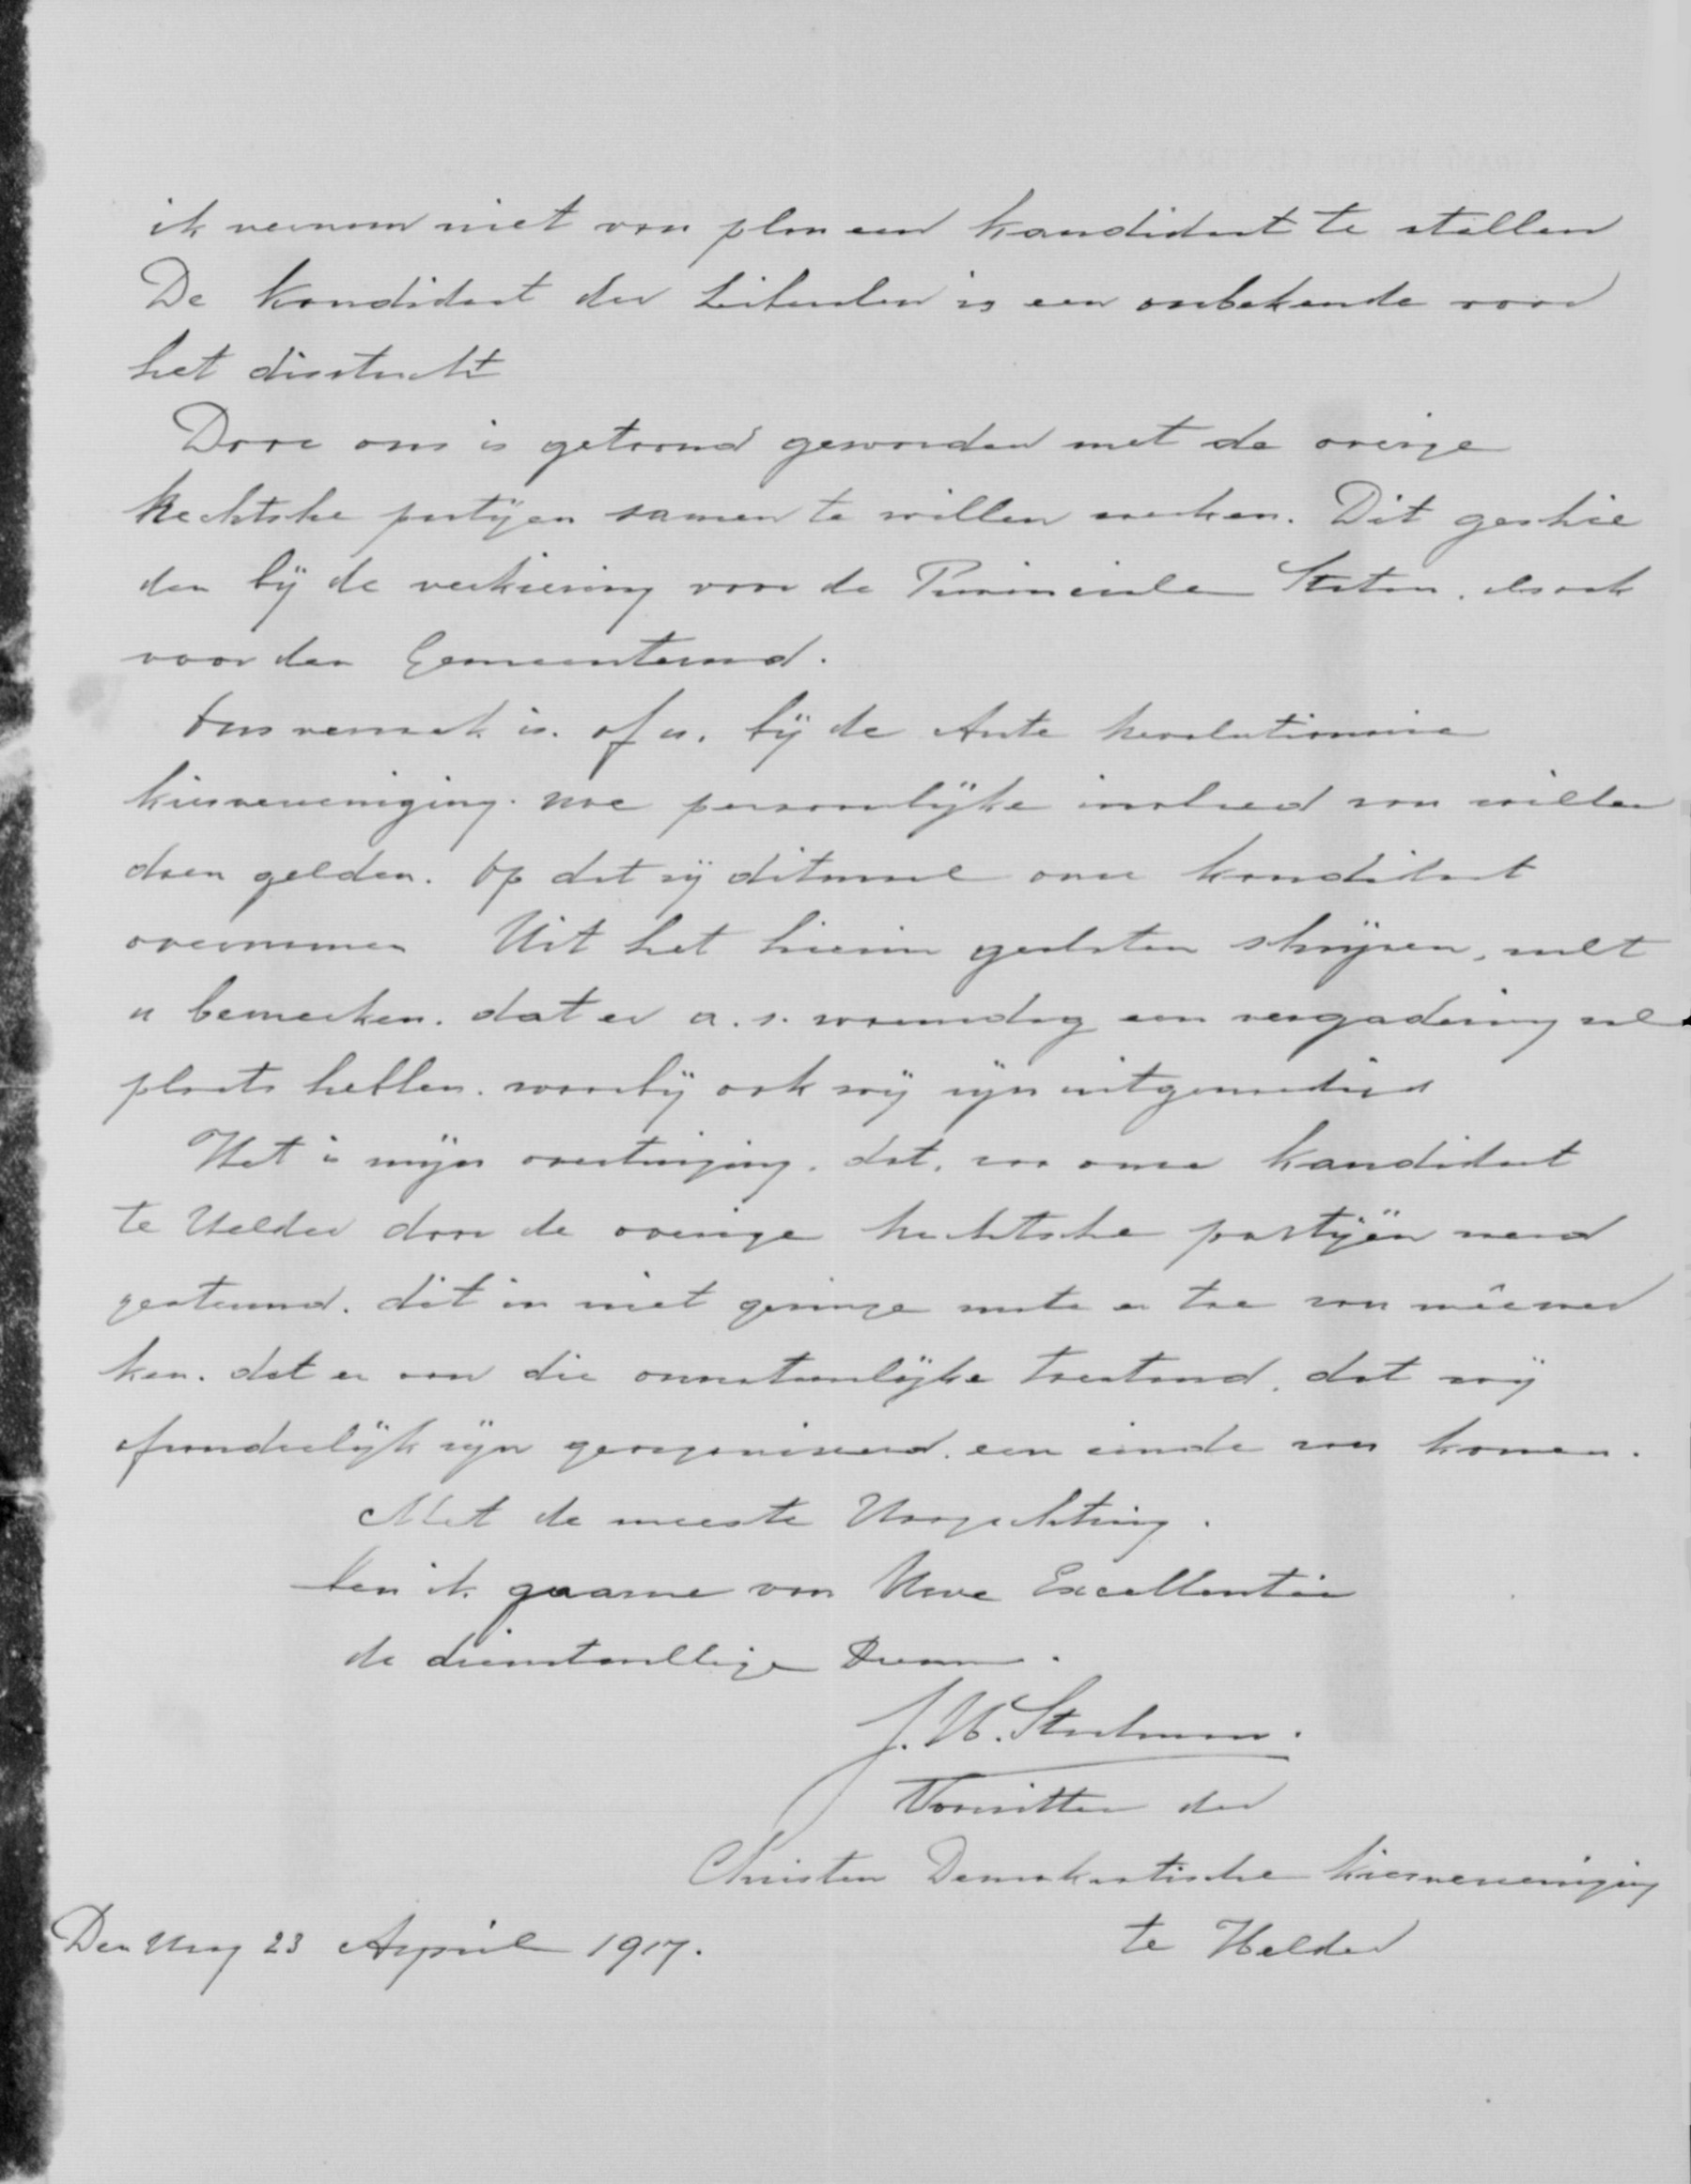 ik vernam niet van plan een kandidaat te stellen
De kandidaat der Liberalen is een onbekende voor
het disstrikt
Door ons is getoond geworden met de overige
Rechtsche partijen samen te willen werken. Dit geschie
den bij de verkiezing voor de Provinciale Staten, als ook
voor den Gemeenteraad.
Ons verzoek is. of u. bij de Ante Revolutionnaire
kiesvereeniging. uwe persoonlijke invloed zou willen
doen gelden. Op dat zij ditmaal onze kandidaat
overnamen Uit het hierin gesloten schrijven, zult
u bemerken. dat er a. s. woensdag een vergadering zal
plaats hebben. waarbij ook wij zijn uitgenoodigd
Het is mijn overtuiging. dat, zoo onze kandidaat
te Helder door de overige Rechtsche partijën werd
gesteund. dit in niet geringe mate er toe zou meêwer
ken. dat er aan die onnatuurlijke toestand, dat wij
afzonderlijk zijn georganiseerd. een einde zou komen.
Met de meeste Hoogachting.
ben ik gaarne van Uwe Excellentie
de dienstwillige Dienaar.
J. H.
Voorzitter der
Christen Demokratische Kiesvereeniging
te Helder
Den Haag 23 April 1917.